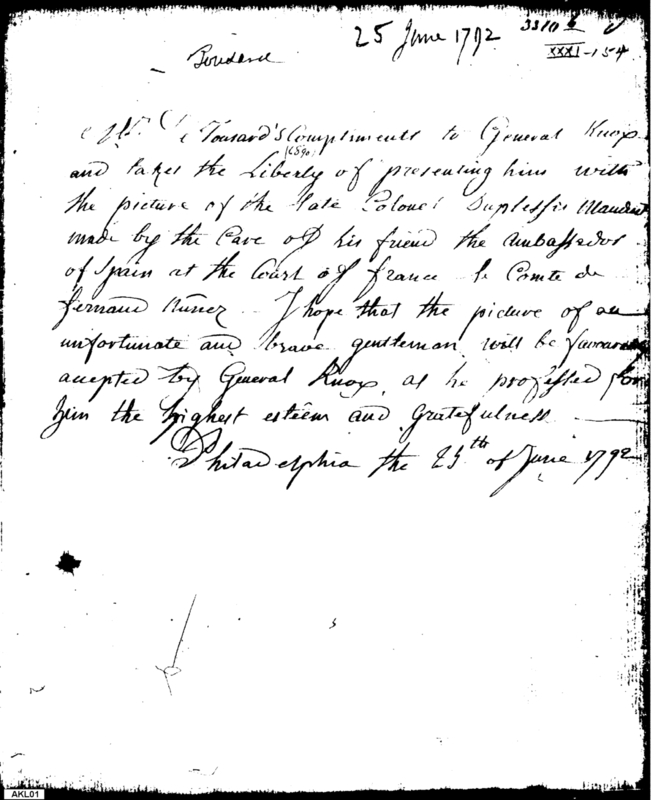 25 June 1792
3310
XXXI-154
Mr. De Tousard's Compliments to General Knox
and takes the Liberty of presenting him with
the picture of the late Colonel Duplessis Mauduit
made by the Care of his friend the Ambassador
of Spain at the Court of france le Comte de
fernand Nunez. I hope that the picture of an
unfortunate and brave gentleman will be
accepted by General Knox, as he professed for
him the highest esteem and gratefulness.
Philadelphia the 25th of June 1792
AKL01